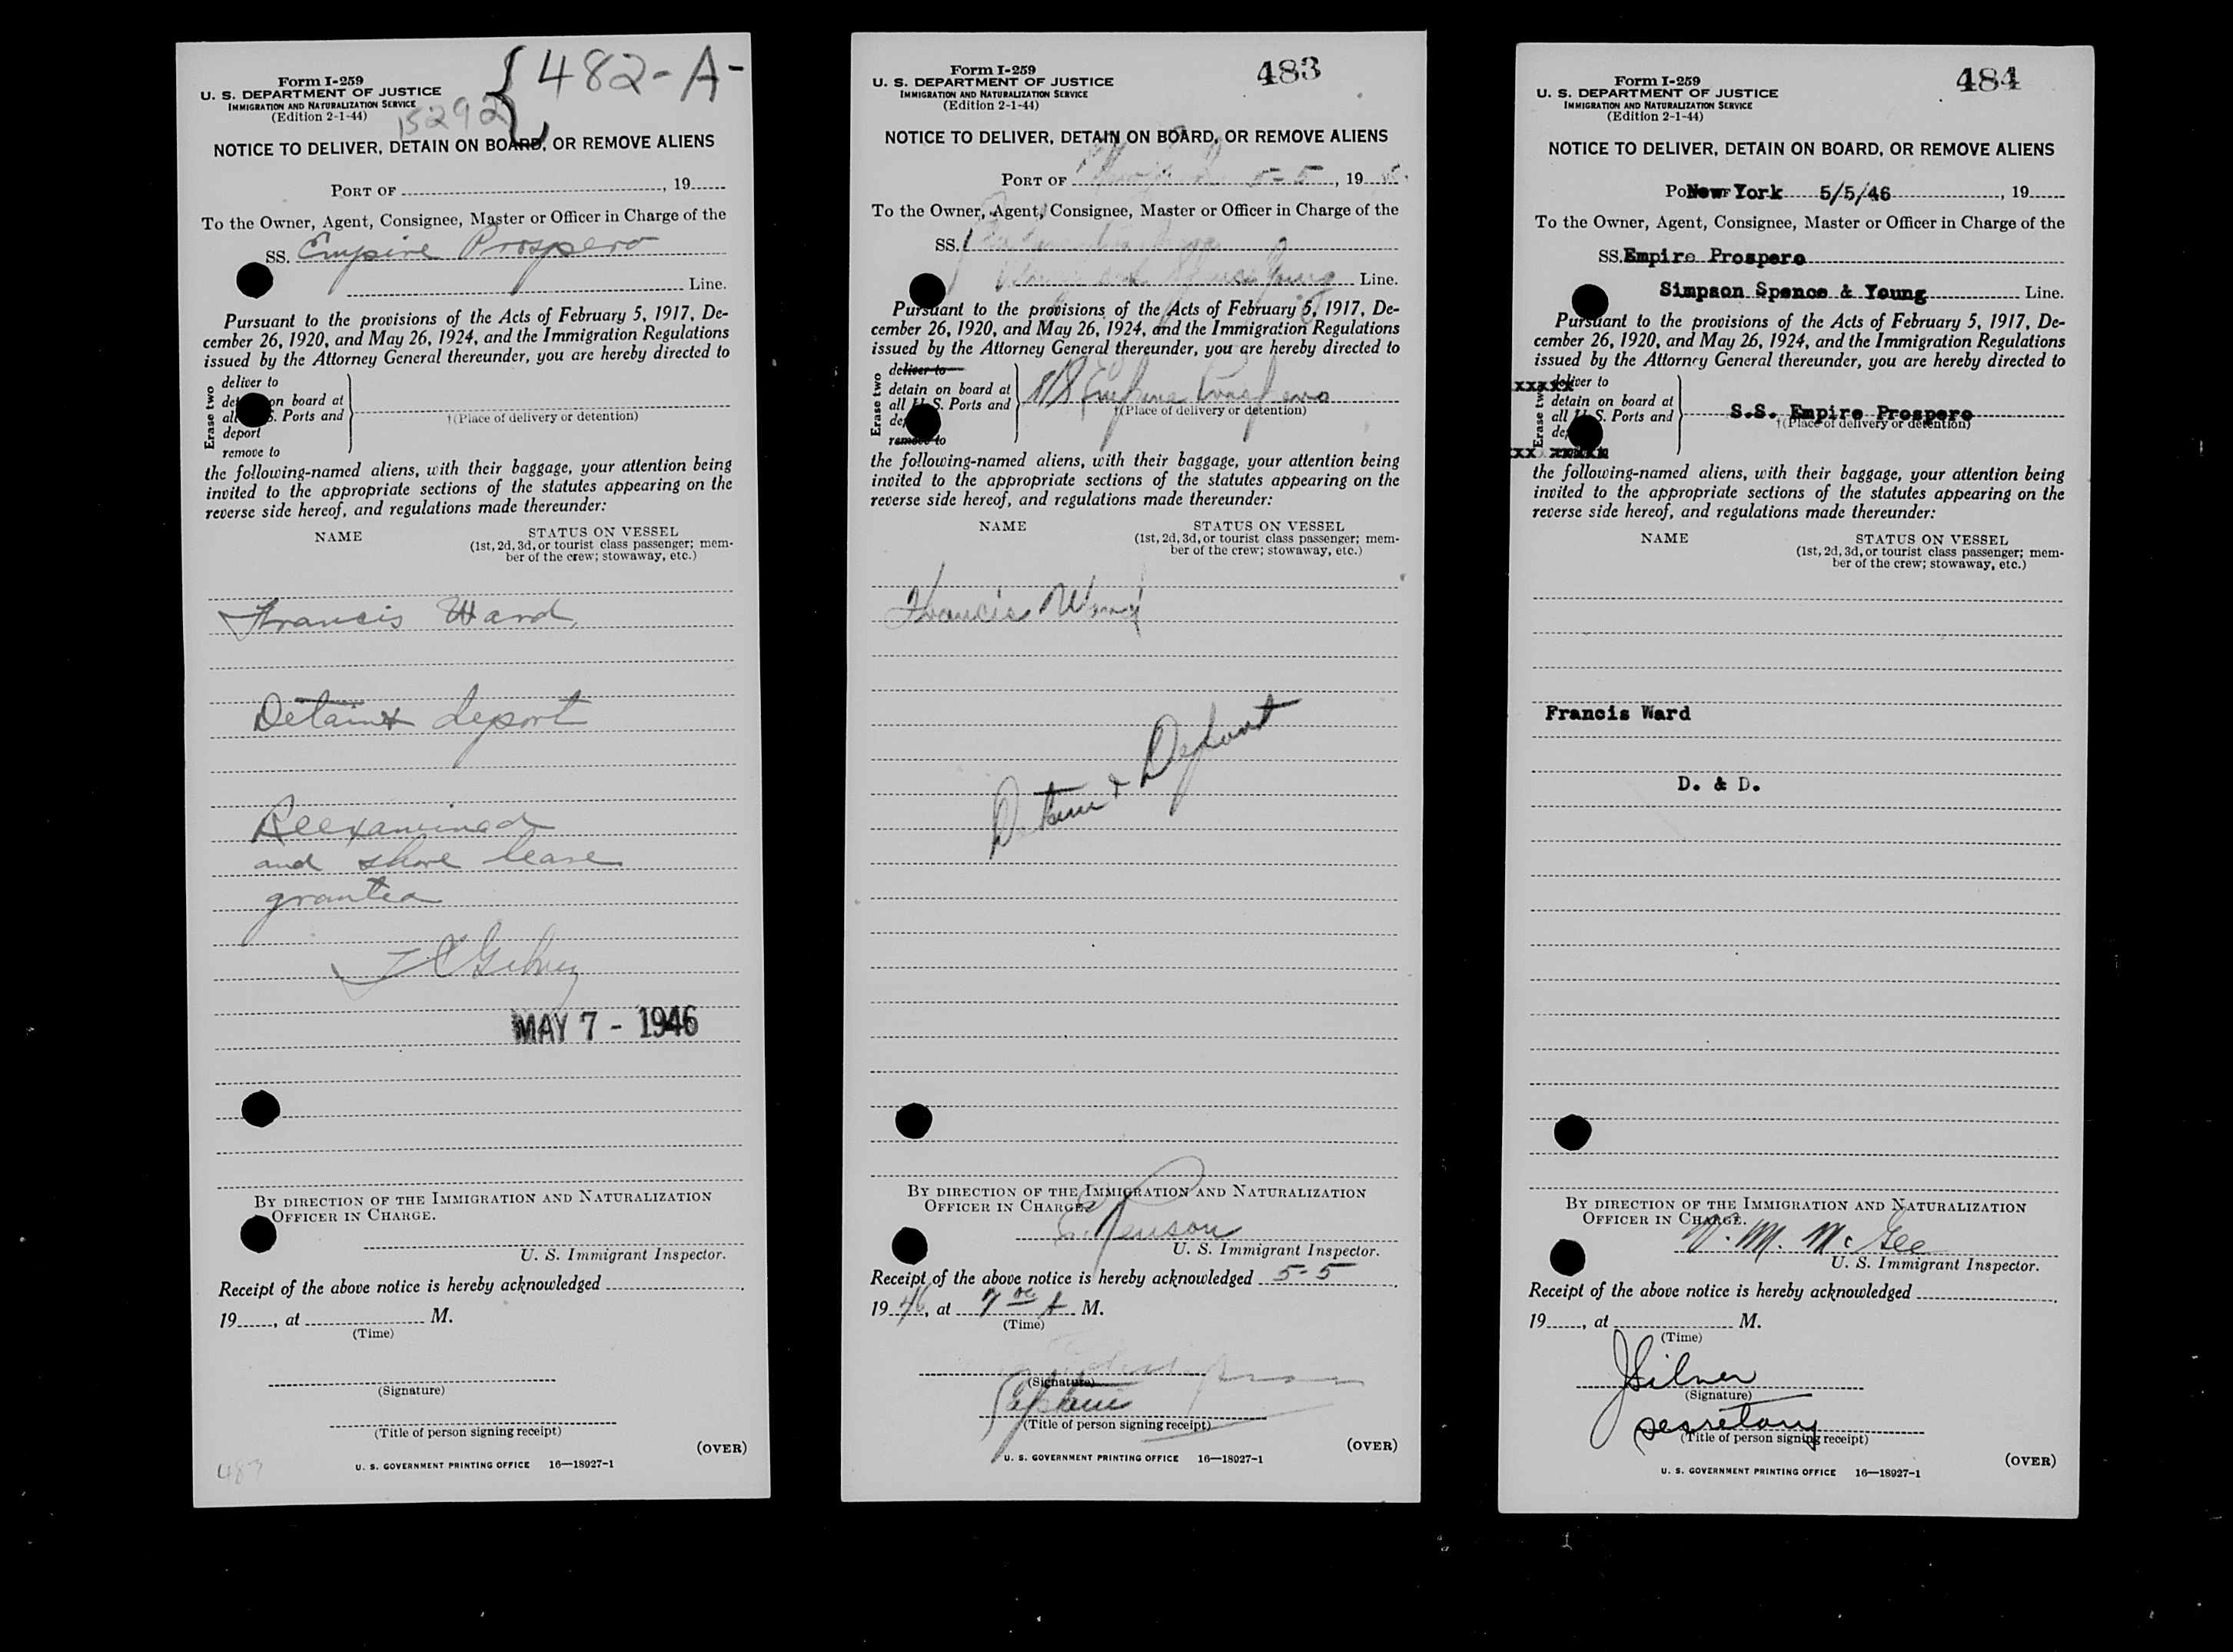 Form I-259
U. S. DEPARTMENT OF JUSTICE
IMMIGRATION AND NATURALIZATION SERVICE
(Edition 2-1-44)
15292
482-A-
NOTICE TO DELIVER, DETAIN ON BOARD, OR REMOVE ALIENS
PORT OF , 19
To the Owner, Agent, Consignee, Master or Officer in Charge of the
SS. Empire Prospero
Line.
Pursuant to the provisions of the Acts of February 5, 1917, De-
cember 26, 1920, and May 26, 1924, and the Immigration Regulations
issued by the Attorney General thereunder, you are hereby directed to
Erase two
deliver to
on board at
S. Ports and
deport
remove to
†(Place of delivery or detention)
the following-named aliens, with their baggage, your attention being
invited to the appropriate sections of the statutes appearing on the
reverse side hereof, and regulations made thereunder:
NAME STATUS ON VESSEL
(1st, 2d, 3d, or tourist class passenger; mem-
ber of the crew; stowaway, etc.)
Francis Ward
Detain & deport
Reexamined
and shore leave
granted
MAY 7 - 1946
BY DIRECTION OF THE IMMIGRATION AND NATURALIZATION
OFFICER IN CHARGE.
U. S. Immigrant Inspector.
Receipt of the above notice is hereby acknowledged
19 , at M.
(Time)
(Signature)
(Title of person signing receipt)
(OVER)
U. S. GOVERNMENT PRINTING OFFICE 16—18927-1
Form I-259
U. S. DEPARTMENT OF JUSTICE
IMMIGRATION AND NATURALIZATION SERVICE
(Edition 2-1-44)
483
NOTICE TO DELIVER, DETAIN ON BOARD, OR REMOVE ALIENS
PORT OF 5-5 , 19
To the Owner, Agent, Consignee, Master or Officer in Charge of the
SS.
Line.
Pursuant to the provisions of the Acts of February 5, 1917, De-
cember 26, 1920, and May 26, 1924, and the Immigration Regulations
issued by the Attorney General thereunder, you are hereby directed to
Erase two
deliver to
detain on board at
all U. S. Ports and
remove to
S/S Empire Prospero
†(Place of delivery or detention)
the following-named aliens, with their baggage, your attention being
invited to the appropriate sections of the statutes appearing on the
reverse side hereof, and regulations made thereunder:
NAME STATUS ON VESSEL
(1st, 2d, 3d, or tourist class passenger; mem-
ber of the crew; stowaway, etc.)
Francis Ward
Detain & Deport
BY DIRECTION OF THE IMMIGRATION AND NATURALIZATION
OFFICER IN CHARGE.
U. S. Immigrant Inspector.
Receipt of the above notice is hereby acknowledged 5-5
19 46, at 7 00 A M.
(Time)
(Signature)
Captain
(Title of person signing receipt)
(OVER)
U. S. GOVERNMENT PRINTING OFFICE 16—18927-1
Form I-259
U. S. DEPARTMENT OF JUSTICE
IMMIGRATION AND NATURALIZATION SERVICE
(Edition 2-1-44)
484
NOTICE TO DELIVER, DETAIN ON BOARD, OR REMOVE ALIENS
New York 5/5/46 , 19
To the Owner, Agent, Consignee, Master or Officer in Charge of the
SS. Empire Prospero
Simpson Spence & Young Line.
Pursuant to the provisions of the Acts of February 5, 1917, De-
cember 26, 1920, and May 26, 1924, and the Immigration Regulations
issued by the Attorney General thereunder, you are hereby directed to
Erase two
deliver to
detain on board at
all U. S. Ports and
S.S. Empire Prospero
†(Place of delivery or detention)
the following-named aliens, with their baggage, your attention being
invited to the appropriate sections of the statutes appearing on the
reverse side hereof, and regulations made thereunder:
NAME STATUS ON VESSEL
(1st, 2d, 3d, or tourist class passenger; mem-
ber of the crew; stowaway, etc.)
Francis Ward
D. & D.
BY DIRECTION OF THE IMMIGRATION AND NATURALIZATION
OFFICER IN CHARGE.
McGee
U. S. Immigrant Inspector.
Receipt of the above notice is hereby acknowledged
19 , at M.
(Time)
(Signature)
secretary
(Title of person signing receipt)
(OVER)
U. S. GOVERNMENT PRINTING OFFICE 16—18927-1